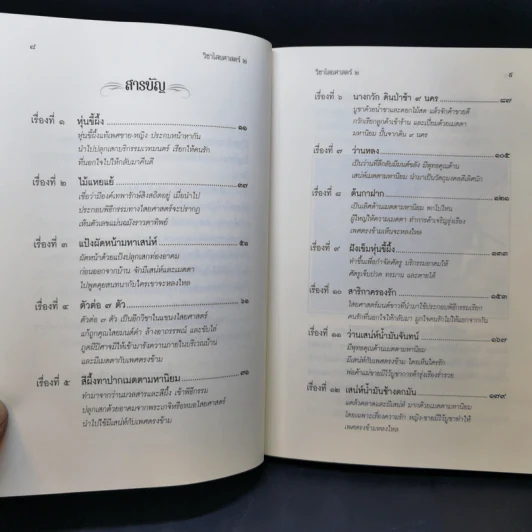 ๘
วิชาไสยศาสตร์ ๒
สารบัญ
เรื่องที่ ๑ หุ่นขี้ผึ้ง ๑๑
หุ่นขี้ผึ้งแท้เพศชาย-หญิง ประกบหน้ากัน
นำไปปลุกเสกบริกรรมเวทมนตร์ เรียกให้คนรัก
ที่นอกใจไปให้กลับมาคืนดี
เรื่องที่ ๒ ไม้แหยแย้
เชื่อว่ามีองค์เทพารักษ์สิงสถิตอยู่ เมื่อนำไป
ประกอบพิธีกรรมทางไสยศาสตร์จะปรากฏ
เห็นตัวเลขแม่นฉมังราวตาทิพย์
เรื่องที่ ๓ แป้งผัดหน้ามหาเสน่ห์ ๕๑
ผัดหน้าด้วยแป้งปลุกเสกท่องอาคม
ก่อนออกจากบ้าน จักมีเสน่ห์และเมตตา
ไปพูดคุยสนทนากับใครเขาจะหลงใหล
เรื่องที่ ๔ ตัวต่อ ๗ ตัว ๖๑
ตัวต่อ ๗ ตัว เป็นอีกวิชาในแขนงไสยศาสตร์
แก้ถูกคุณไสยมนต์ดำ ล้างอาถรรพณ์ และขับไล่
ภูตผีปีศาจมิให้เข้ามารังควานภายในบริเวณบ้าน
และมีเมตตากับเพศตรงข้าม
เรื่องที่ ๕ สีผึ้งทาปากเมตตามหานิยม
ทำมาจากว่านมวลสารและสีผึ้ง เข้าพิธีกรรม
ปลุกเสกด้วยอาคมจากพระเกจิหรือหมอไสยศาสตร์
นำไปใช้มีเสน่ห์กับเพศตรงข้าม
วิชาไสยศาสตร์ ๒
๙
เรื่องที่ ๖ นางกวัก ดินป่าช้า ๙ นคร ๘๗
บูชาด้วยน้ำชาและดอกไม้สด แล้วจักค้าขายดี
กวักเรียกลูกค้าเข้าร้าน และเปี่ยมด้วยเมตตา
มหานิยม ปั้นจากดิน ๙ นคร
เรื่องที่ ๗ ว่านหลง ๑๐๕
เป็นว่านที่ลึกลับมีมนต์ขลัง มีพุทธคุณด้าน
เสน่ห์เมตตามหานิยม นำมาเป็นวัตถุมงคลที่เลิศนัก
เรื่องที่ ๘ ต้นกาฝาก ๑๒๑
เป็นเลิศด้านเมตตามหานิยม พกไปไหน
ผู้ใหญ่ให้ความเมตตา ทำการค้าเจริญรุ่งเรือง
เพศตรงข้ามเห็นจะหลงใหล
เรื่องที่ ๙ ฝังเข็มหุ่นขี้ผึ้ง ๑๓๓
ทำขึ้นเพื่อกำจัดศัตรู บริกรรมอาคมให้
ศัตรูเจ็บปวด ทรมาน และตายได้
เรื่องที่ ๑๐ สาริกาครองรัก ๑๕๓
ไสยศาสตร์มนต์ขาวที่นำมาใช้ประกอบพิธีกรรมเรียก
คนรักที่นอกใจให้กลับมา ผูกใจคนรักไม่ให้แยกจากกัน
เรื่องที่ ๑๑ ว่านเสน่ห์น้ำมันจันทน์ ๑๖๗
มีพุทธคุณด้านเมตตามหานิยม
มีเสน่ห์กับเพศตรงข้าม โดยเห็นใครรัก
พ่อค้าแม่ขายมีไว้บูชาการค้ารุ่งเรืองร่ำรวย
เรื่องที่ ๑๒ เสน่ห์น้ำมันช้างตกมัน ๑๗๙
แคล้วคลาดและมีเสน่ห์ มากด้วยเมตตามหานิยม
โดยเฉพาะเรื่องความรัก หญิง-ชายมีไว้บูชาทำให้
เพศตรงข้ามหลงใหล